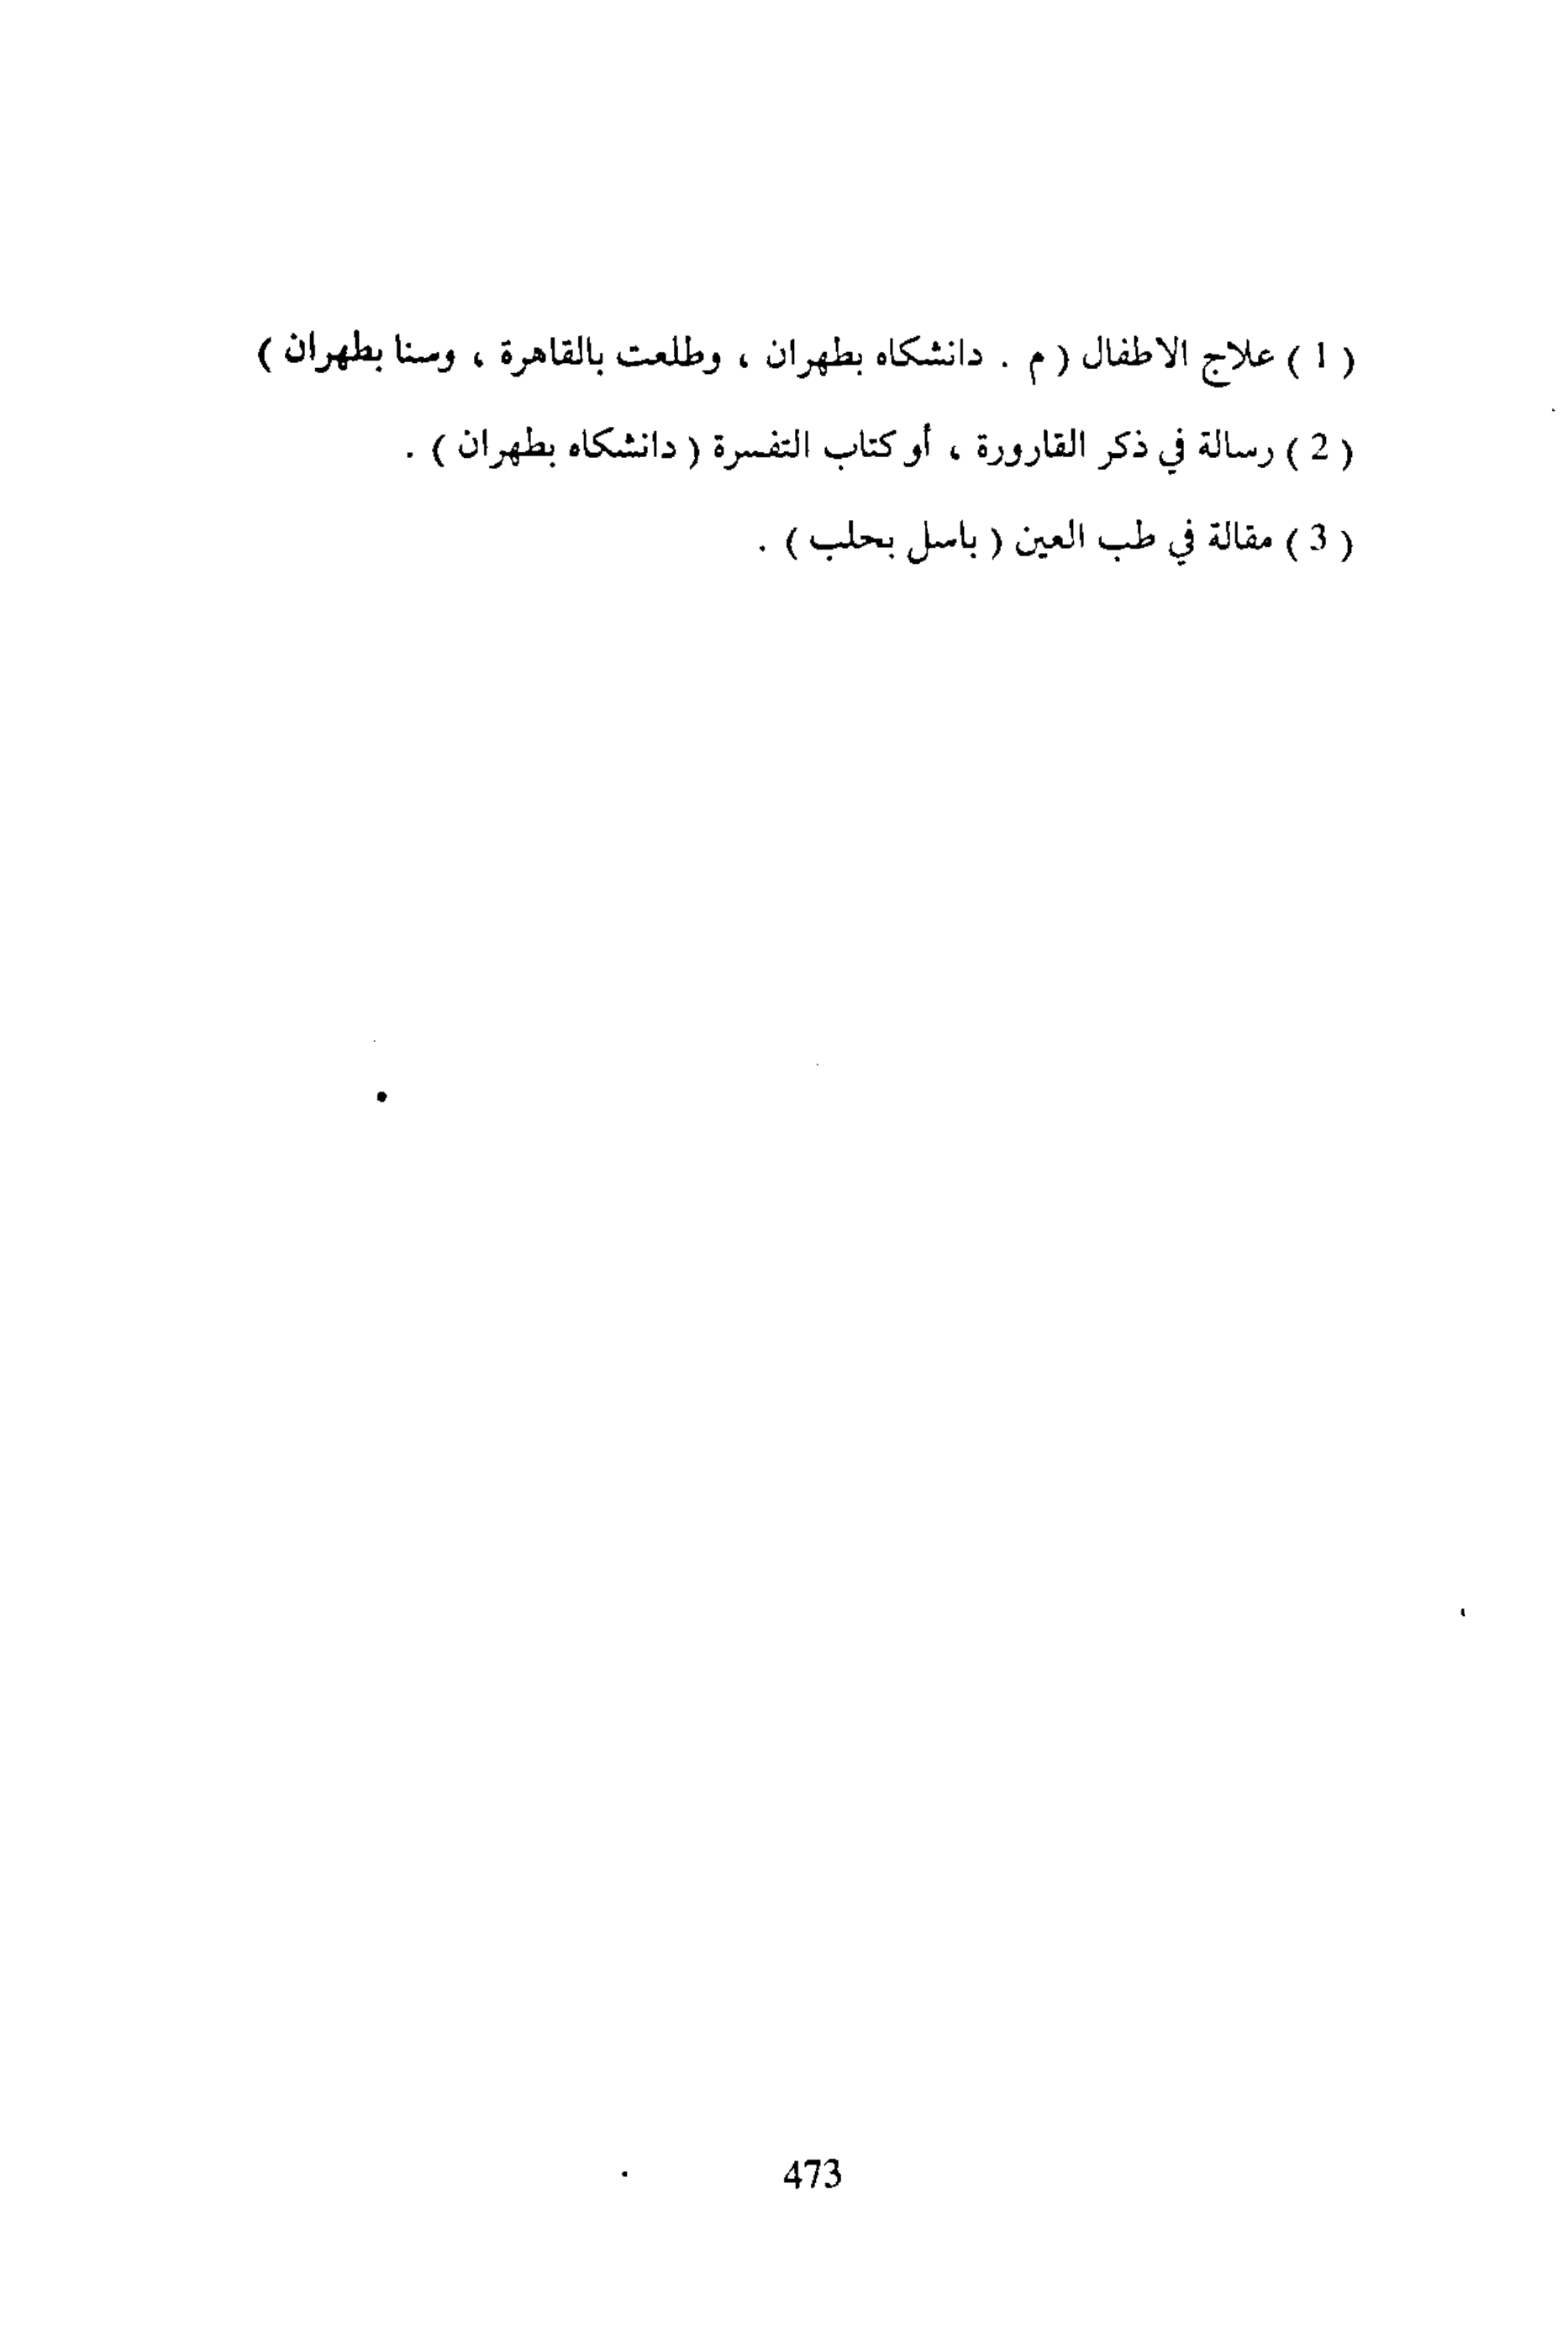 ( 1 ) علاج الاطفال ( م . دانشكاه بطهران ، وطلعت بالقاهرة ، وسنا بطهران )
( 2 ) رسالة في ذكر القارورة ، أو كتاب التفسرة ( دانشكاه بطهران ) .
( 3 ) مقالة في طب العين ( باسل بحلب ) .
473